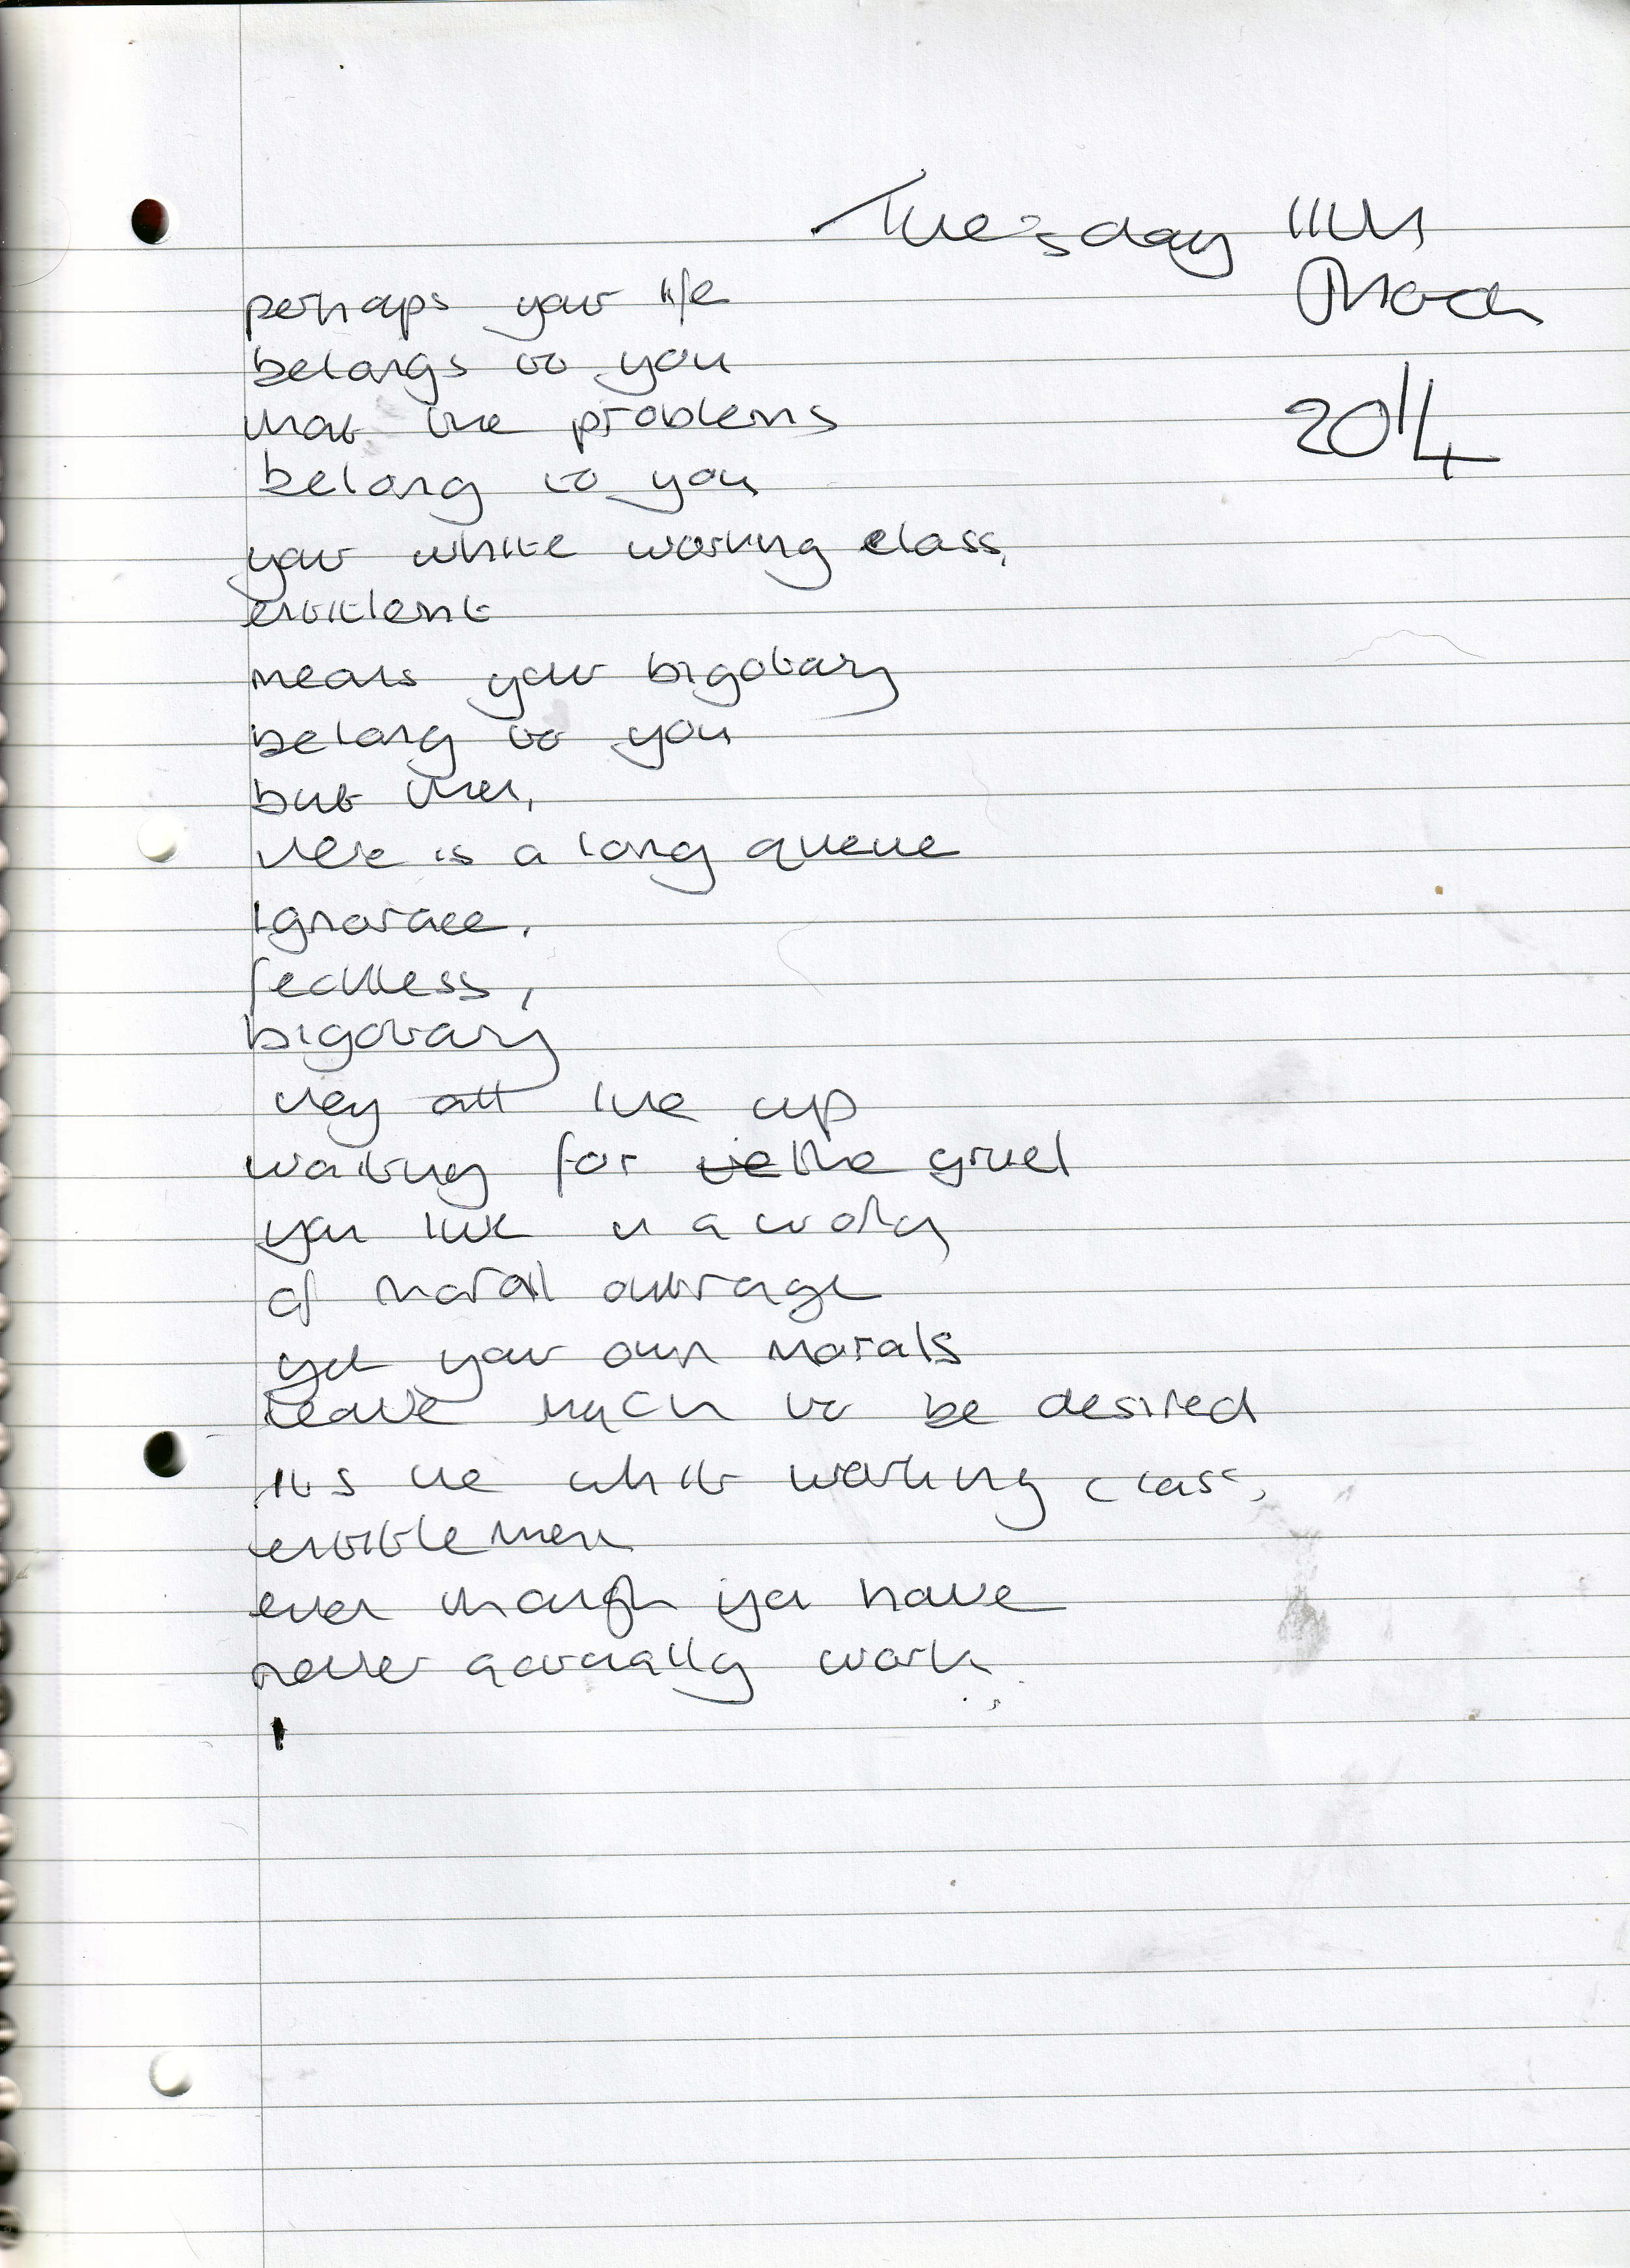 Tuesday 11th
March
2014
perhaps your life
belongs to you
that the problems
belong to you
your white working class,
entitlent
means your bigotary
belong to you
but then,
there is a long queue
ignorace,
feckless,
bigotary
they all line up
waiting for te the gruel
you live in a world
of moral outrage
yet your own morals
leave much to be desired
it's the white working class,
entitlement
even though you have
never actually work